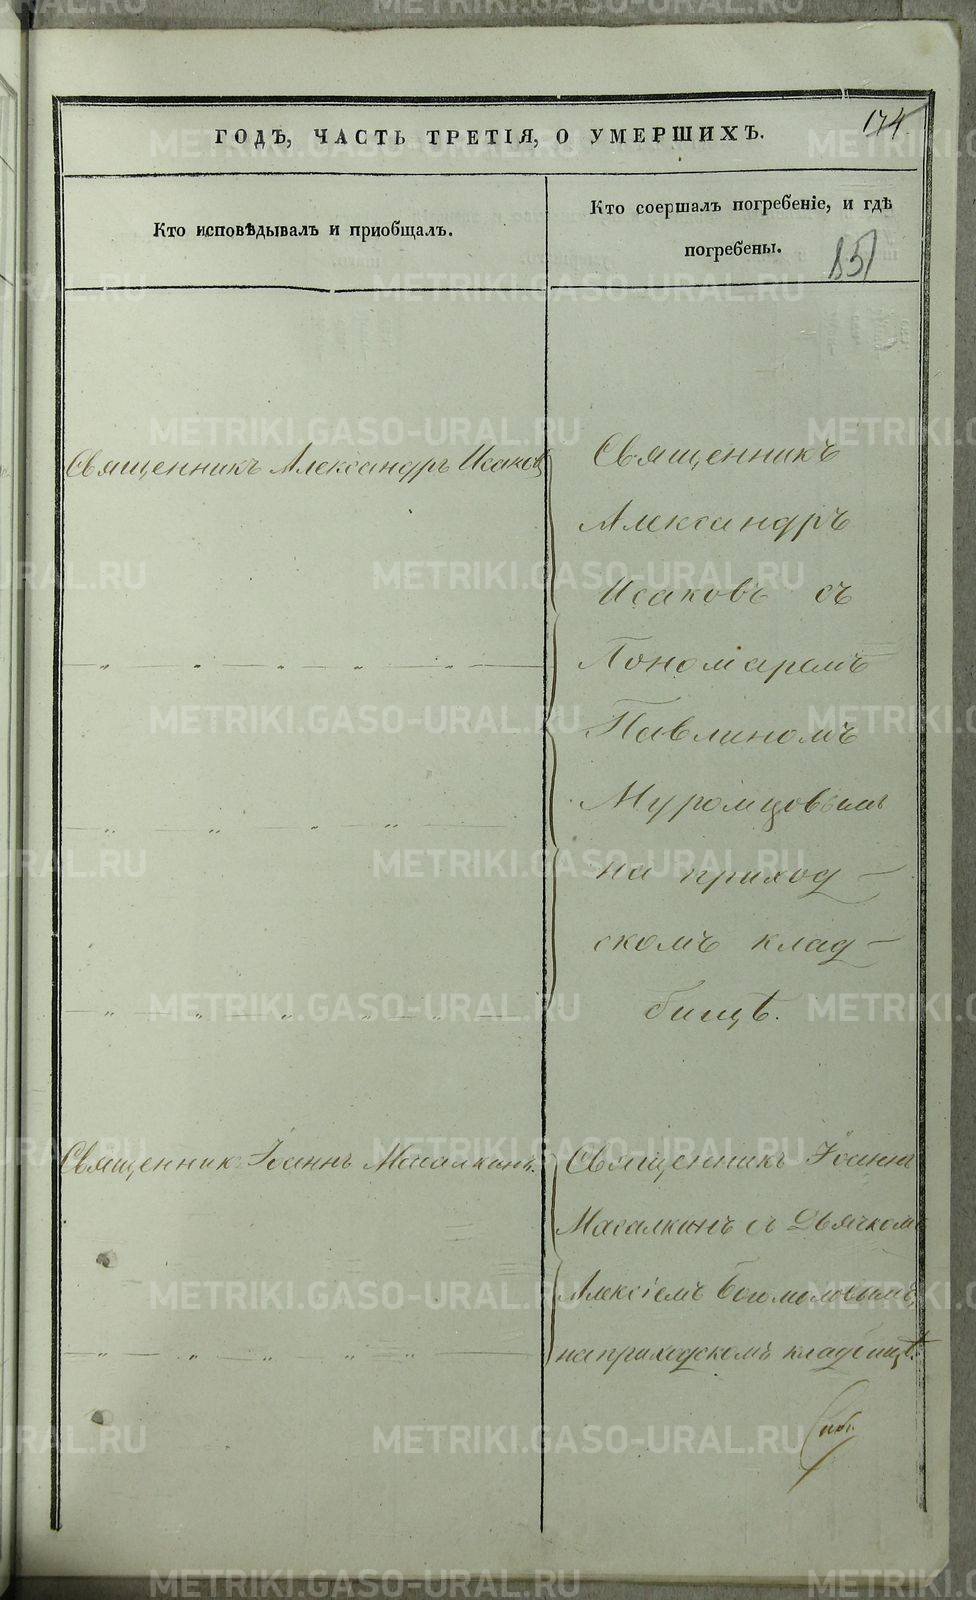 ГОДЪ, ЧАСТЬ ТРЕТІЯ, О УМЕРШИХЪ.
174.
Кто исповѣдывалъ и приобщалъ.
Кто соершалъ погребеніе, и гдѣ
погребены.
Священникъ Александръ Исаковъ
Священникъ
Александръ
Исаковъ съ
Пономаремъ
Павлиномъ
Муромцовымъ
на приход-
скомъ клад-
бищѣ.
Священникъ Іоаннъ Масалкинъ.
Священникъ Іоаннъ
Масалкинъ съ Дьячкомъ
Алексіемъ Богомоловымъ,
на приходскомъ кладбищѣ.
METRIKI.GASO-URAL.RU